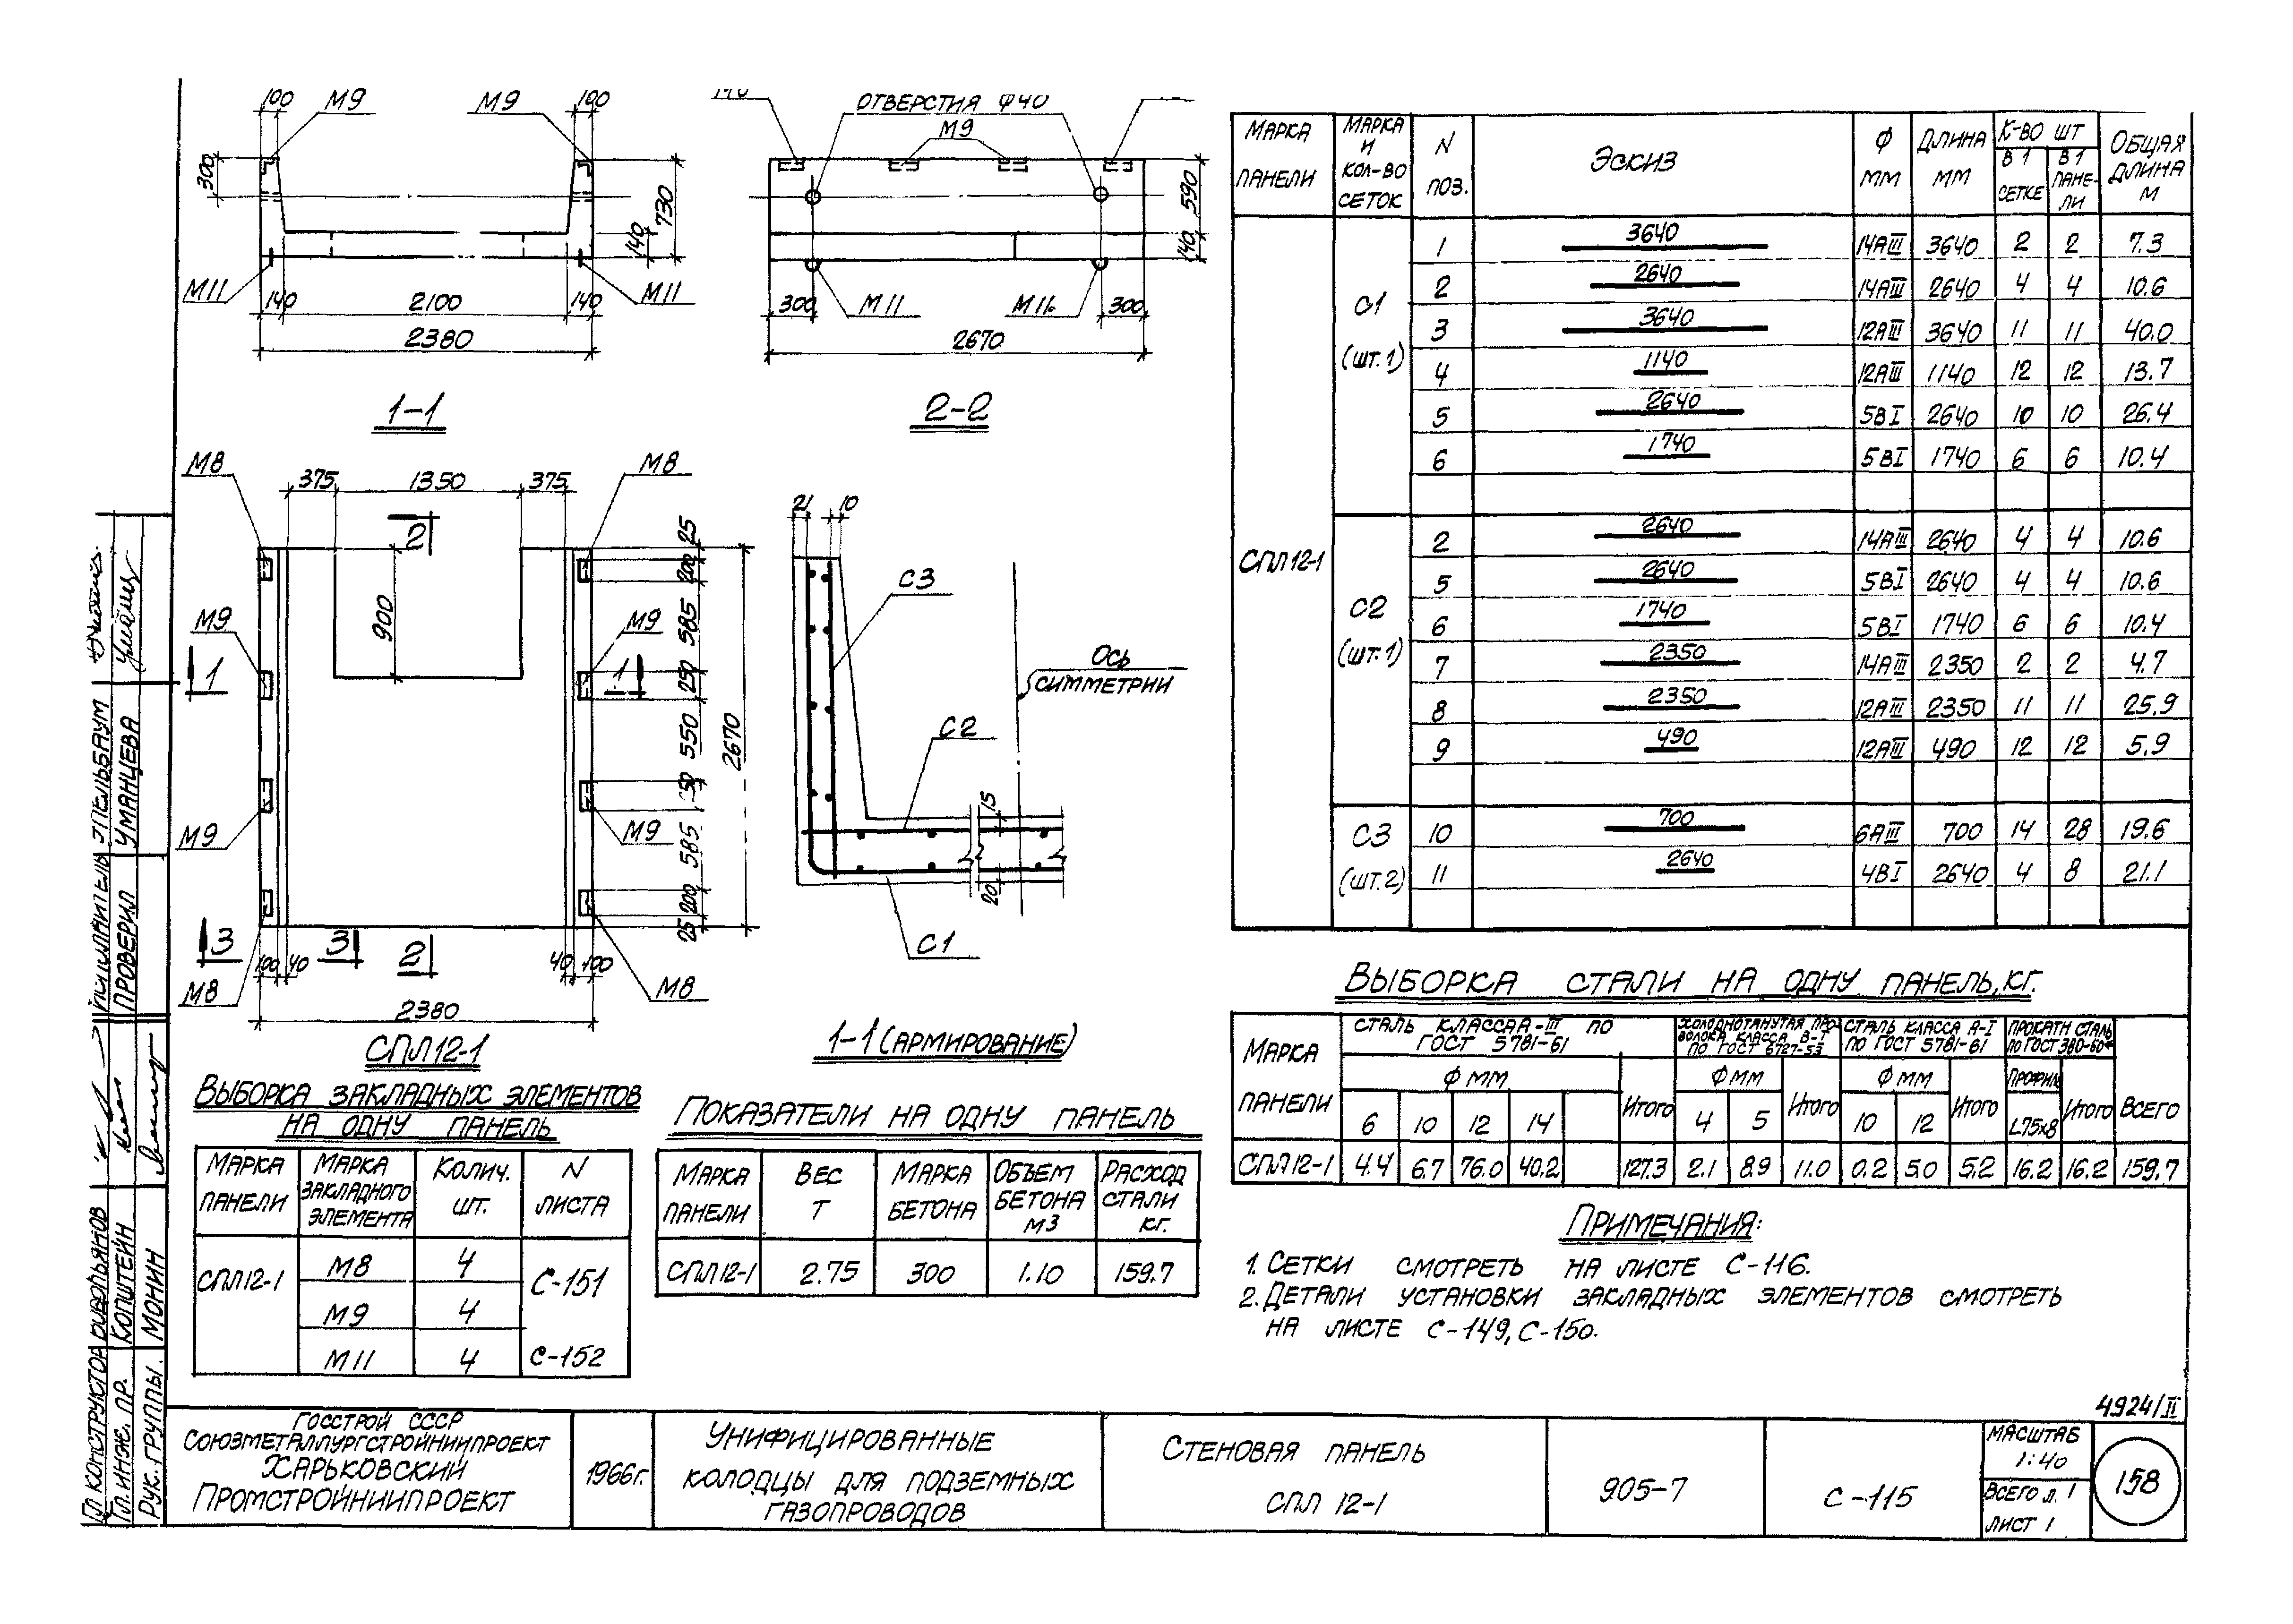 100 М9 М9 100
300 730 140
М11 140 2100 140 М11
2380
1-1
ОТВЕРСТИЯ Ф40
М9
590 140
300 М11 М11 300
2670
2-2
М8 375 1350 375 М8
2 25
200
900 585
М9 М9
1 1 250
550 2670
М9 М9
585
200
3 3 2 25
100 40 40 100
М8 М8
2380
СПЛ 12-1
21 10
С3
ОСЬ
СИММЕТРИИ
С2
15
20
С1
1-1 (АРМИРОВАНИЕ)
МАРКА ПАНЕЛИ МАРКА И КОЛ-ВО СЕТОК N ПОЗ. ЭСКИЗ Ф ММ ДЛИНА ММ К-ВО ШТ В 1 СЕТКЕ В 1 ПАНЕ-ЛИ ОБЩАЯ ДЛИНА М
СПЛ 12-1
С1 (ШТ. 1)
1 3640 14АIII 3640 2 2 7.3
2 2640 14АIII 2640 4 4 10.6
3 3640 12АIII 3640 11 11 40.0
4 1140 12АIII 1140 12 12 13.7
5 2640 5ВI 2640 10 10 26.4
6 1740 5ВI 1740 6 6 10.4
С2 (ШТ. 1)
2 2640 14АIII 2640 4 4 10.6
5 2640 5ВI 2640 4 4 10.6
6 1740 5ВI 1740 6 6 10.4
7 2350 14АIII 2350 2 2 4.7
8 2350 12АIII 2350 11 11 25.9
9 490 12АIII 490 12 12 5.9
С3 (ШТ. 2)
10 700 6АIII 700 14 28 19.6
11 2640 4ВI 2640 4 8 21.1
ВЫБОРКА СТАЛИ НА ОДНУ ПАНЕЛЬ, КГ.
МАРКА ПАНЕЛИ
СТАЛЬ КЛАССА А-III ПО ГОСТ 5781-61
ХОЛОДНОТЯНУТАЯ ПРОВОЛОКА КЛАССА В-I ПО ГОСТ 6727-53
СТАЛЬ КЛАССА А-I ПО ГОСТ 5781-61
ПРОКАТН СТАЛЬ ПО ГОСТ 380-60*
Ф ММ ИТОГО Ф ММ ИТОГО Ф ММ ИТОГО ПРОФИЛЬ ИТОГО ВСЕГО
6 10 12 14 4 5 10 12 L75х8
СПЛ 12-1 4.4 6.7 76.0 40.2 127.3 2.1 8.9 11.0 0.2 5.0 5.2 16.2 16.2 159.7
ВЫБОРКА ЗАКЛАДНЫХ ЭЛЕМЕНТОВ
НА ОДНУ ПАНЕЛЬ
МАРКА ПАНЕЛИ МАРКА ЗАКЛАДНОГО ЭЛЕМЕНТА КОЛИЧ. ШТ. N ЛИСТА
СПЛ 12-1 М8 4 С-151
М9 4
М11 4 С-152
ПОКАЗАТЕЛИ НА ОДНУ ПАНЕЛЬ
МАРКА ПАНЕЛИ ВЕС Т МАРКА БЕТОНА ОБЪЕМ БЕТОНА М3 РАСХОД СТАЛИ КГ.
СПЛ 12-1 2.75 300 1.10 159.7
ПРИМЕЧАНИЯ:
1. СЕТКИ СМОТРЕТЬ НА ЛИСТЕ С-116.
2. ДЕТАЛИ УСТАНОВКИ ЗАКЛАДНЫХ ЭЛЕМЕНТОВ СМОТРЕТЬ
НА ЛИСТЕ С-149, С-150.
4924/II
ГОССТРОЙ СССР
СОЮЗМЕТАЛЛУРГСТРОЙНИИПРОЕКТ
ХАРЬКОВСКИЙ
ПРОМСТРОЙНИИПРОЕКТ
1966г.
УНИФИЦИРОВАННЫЕ
КОЛОДЦЫ ДЛЯ ПОДЗЕМНЫХ
ГАЗОПРОВОДОВ
СТЕНОВАЯ ПАНЕЛЬ
СПЛ 12-1
905-7
С-115
МАСШТАБ
1:40
ВСЕГО Л. 1
ЛИСТ 1
158
ГЛ КОНСТРУКТОР
ГЛ. ИНЖ. ПР. КОПШТЕЙН
РУК. ГРУППЫ. МОНИН
ИСПОЛНИТЕЛЬ ЭПЕЛЬБАУМ
ПРОВЕРИЛ УМАНЦЕВА